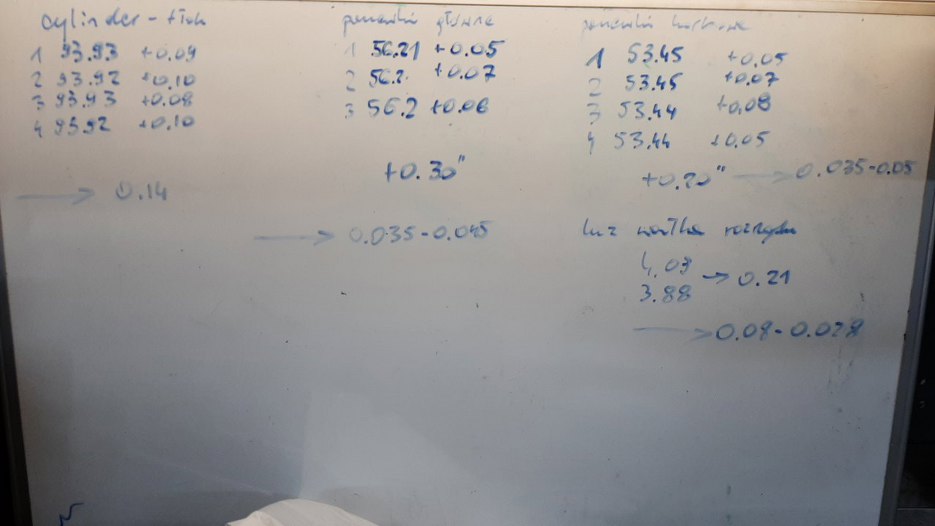 cylinder - tłok
1 93.93 +0.09
2 93.92 +0.10
3 93.93 +0.08
4 93.92 +0.10
→ 0.14
panewki główne
1 56.21 +0.05
2 56.2 +0.07
3 56.2 +0.06
+0.30"
→ 0.035-0.045
panewki korbowe
1 53.45 +0.05
2 53.45 +0.07
3 53.44 +0.08
4 53.44 +0.05
+0.20" → 0.035-0.05
luz wałka rozrządu
4.09
3.88 → 0.21